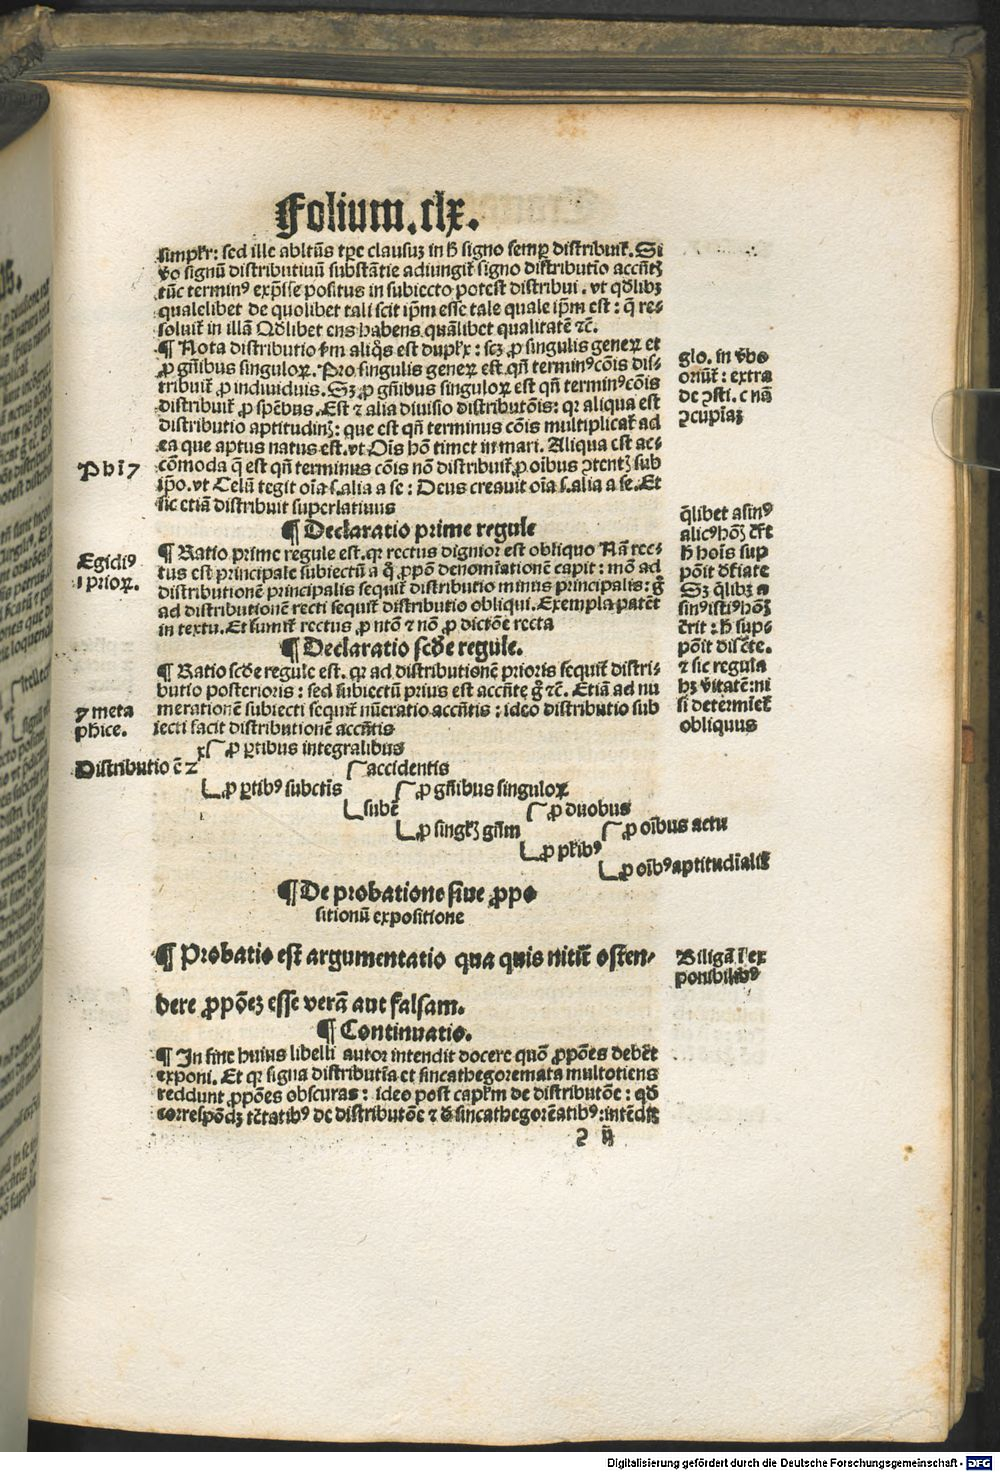 Folium.clx.
simplr̃: sed ille abltũs tꝑe clausuꝫ in h̃ signo semꝑ distribuit̃. Si
ṽo signũ distributiuũ substãtie adiungit̃ signo distributiõ accñtꝫ
tũc terminꝰ exp̃sse positus in subiecto potest distribui. vt qd̃libꝫ
qualelibet de quolibet tali scit ip̃m esse tale quale ip̃m est: q̃ re-
soluit̃ in illã Qd̃libet ens habens quãlibet qualitatẽ ⁊c̃.
¶ Nota distributio s̃m aliq̃s est duplr̃x: scꝫ ꝓ singulis geneꝝ et
ꝓ gñibus singuloꝝ. Pro singulis geneꝝ est qñ terminꝰ cõis dis-
tribuit̃ ꝓ indiuiduis. Sꝫ ꝓ gñibus singuloꝝ est qñ terminꝰ cõis
distribuit̃ ꝓ sp̃ebus. Est ⁊ alia diuisio distributõis: qꝛ aliqua est
distributio aptitudinꝫ: que est qñ terminus cõis multiplicat̃ ad
ea que aptus natus est. vt Oĩs hõ timet in mari. Aliqua est ac-
cõmoda q̃ est qñ terminus cõis nõ distribuit̃ ꝓ oĩbus ꝯtentꝫ sub
ip̃o. vt Celũ tegit oĩa s. alia a se: Deus creauit oĩa s. alia a se. Et
sic etiã distribuit superlatiuus
¶ Declaratio prime regule
¶ Ratio prime regule est. qꝛ rectus dignior est obliquo Nã rec-
tus est principale subiectũ a q̃ ꝓpõ denomĩationẽ capit: mõ ad
distributionẽ principalis sequit̃ distributio minus principalis: g̃
ad distributionẽ recti sequit̃ distributio obliqui. Exempla patẽt
in textu. Et sumit̃ rectus ꝓ ntõ ⁊ nõ ꝓ dictõe recta
¶ Declaratio scd̃e regule.
¶ Ratio scd̃e regule est. qꝛ ad distributionẽ prioris sequit̃ distri-
butio posterioris: sed subiectũ prius est accñte g̃ ⁊c̃. Etiã ad nu
merationẽ subiecti sequit̃ nũeratio accñtis: ideo distributio sub
iecti facit distributionẽ accñtis
Distributio ẽ 2
ꝓ ꝑtibus integralibus
ꝓ ꝑtibꝰ subctĩs
accidentis
subẽ
ꝓ gñibus singuloꝝ
ꝓ singlꝫ gñm
ꝓ duobus
ꝓ plr̃ibꝰ
ꝓ oĩbus actu
ꝓ oĩbꝰ aptitudĩalit̃
¶ De probatione siue ꝓpo
sitionũ expositione
¶ Probatio est argumentatio qua quis nitit̃ osten-
dere ꝓpõeꝫ esse verã aut falsam.
¶ Continuatio.
¶ In fine huius libelli autor intendit docere quõ ꝓpões debẽt
exponi. Et qꝛ signa distributĩa et sincathegoremata multotiens
reddunt ꝓpões obscuras: ideo post caplr̃m de distributõe: qd̃
correspõdꝫ tc̃tatibꝰ de distributõe ⁊ d̃ sincathegorẽatibꝰ: intẽdit̃
2 ij
Phĩ 7
Egidiꝰ
1 prioꝝ.
7 meta
phice.
glo. in ṽbo
onũt̃: extra
de ꝯsti. c nã
ꝯcupĩaꝫ
q̃libet asinꝰ
alicꝰ hõꝫ c̃r̃t
h̃ hoĩs sup
põit d̃f̃iate
Sꝫ q̃libꝫ a
sinꝰ istiꝰ hõꝫ
c̃rit: h̃ sup-
põit disc̃te.
⁊ sic regula
hꝫ ṽitatẽ: ni
si determiet̃
obliquus
Biligã ĩ ex
ponibilibꝰ
Digitalisierung gefördert durch die Deutsche Forschungsgemeinschaft - DFG